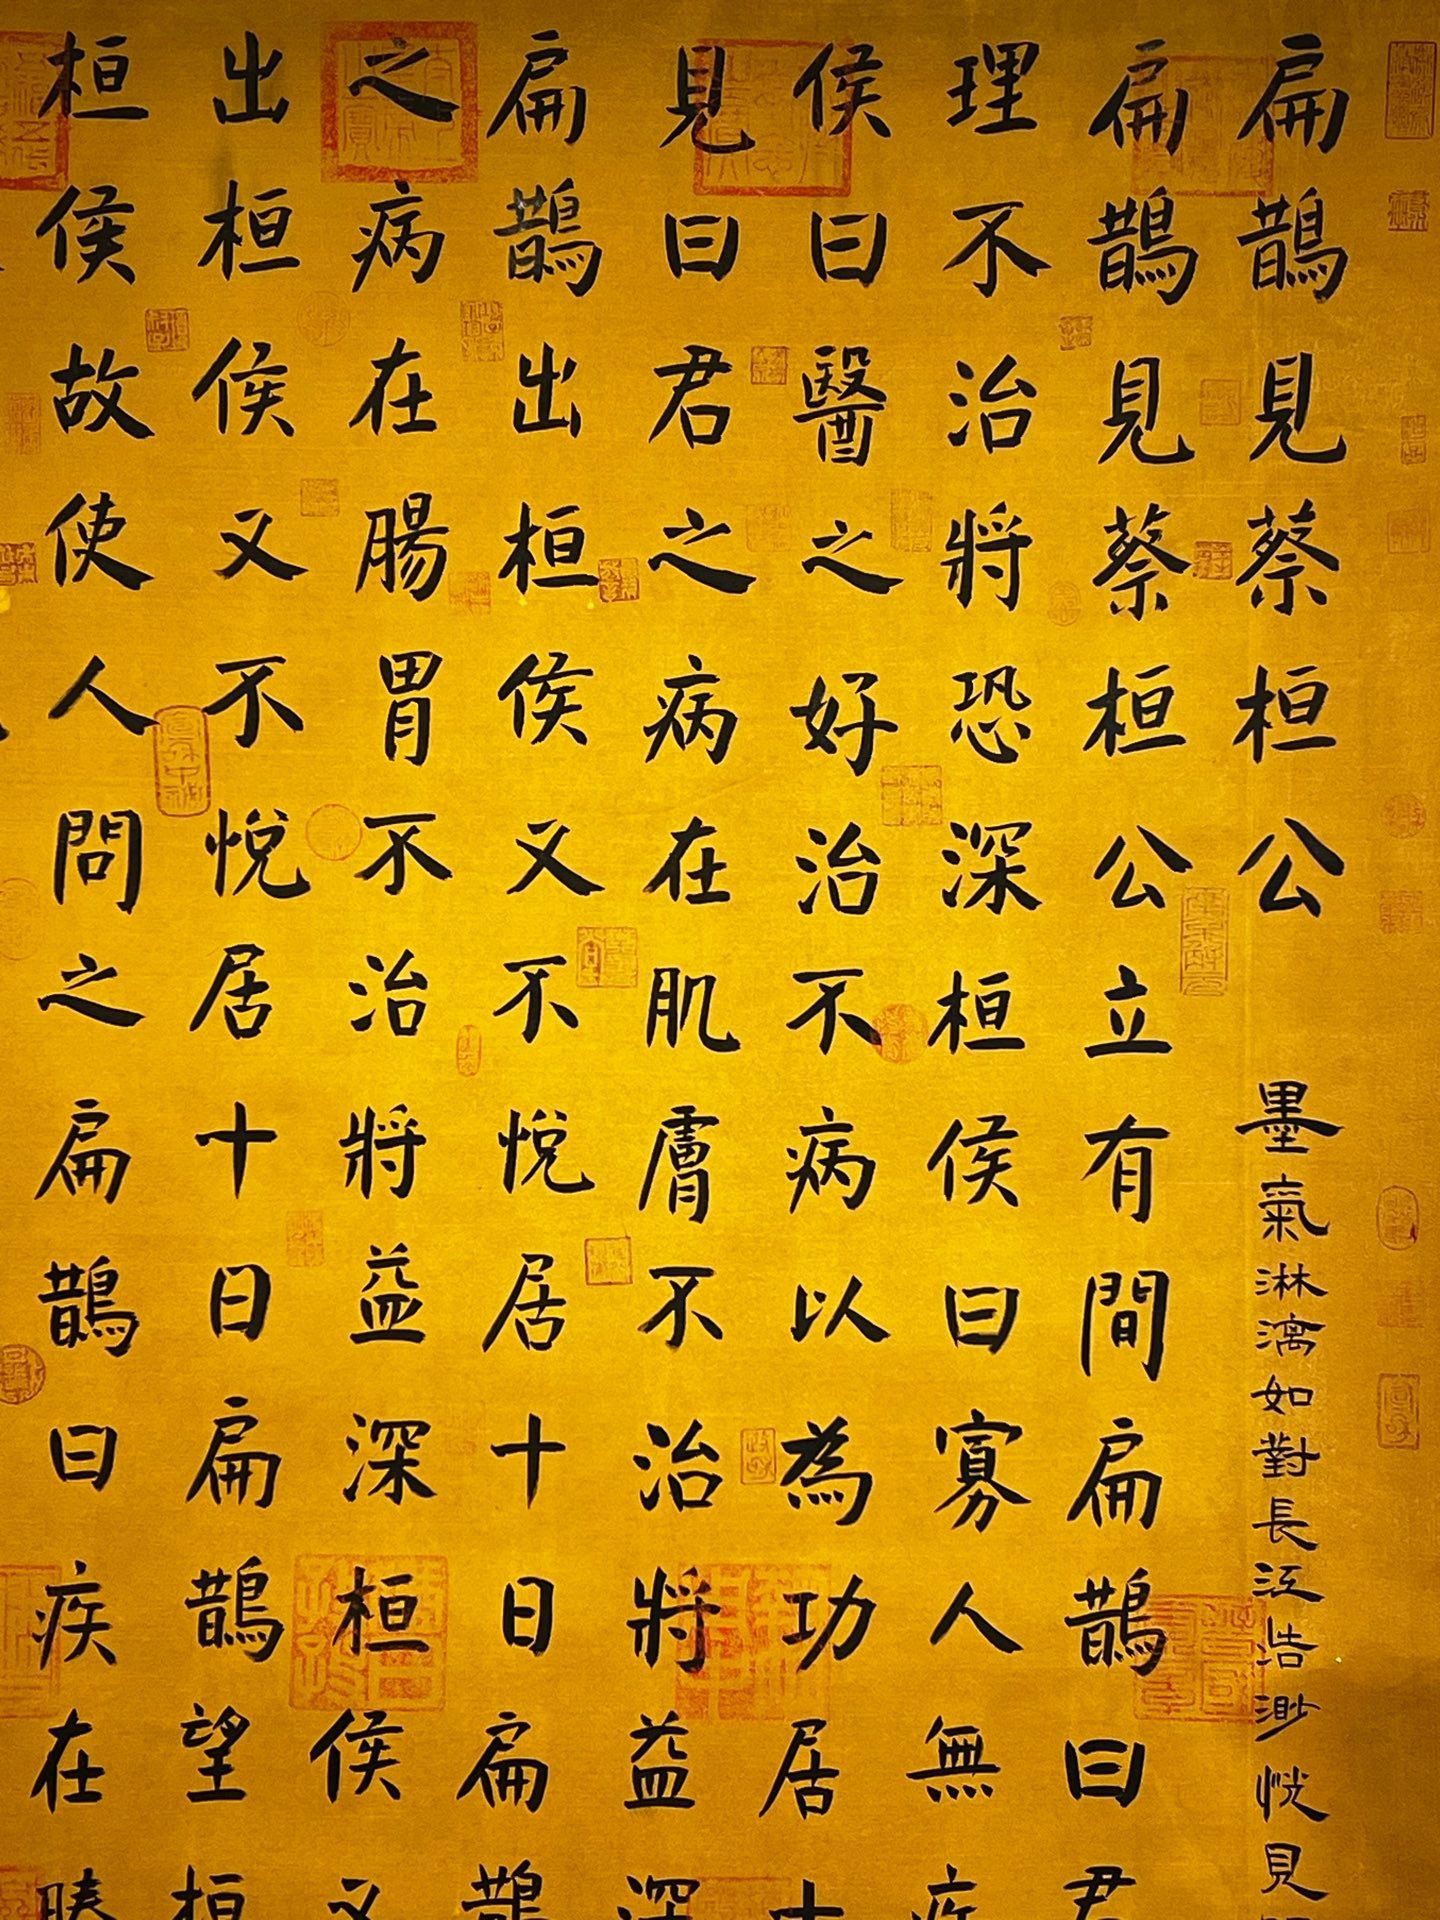 扁鵲見蔡桓公
墨氣淋漓如對長江浩渺恍見
扁鵲見蔡桓公立有間扁鵲曰君
理不治將恐深桓侯曰寡人無疾
侯曰醫之好治不病以為功居十
見曰君之病在肌膚不治將益深
扁鵲出桓侯又不悅居十日扁鵲
之病在腸胃不治將益深桓侯又
出桓侯又不悅居十日扁鵲望桓
桓侯故使人問之扁鵲曰疾在腠